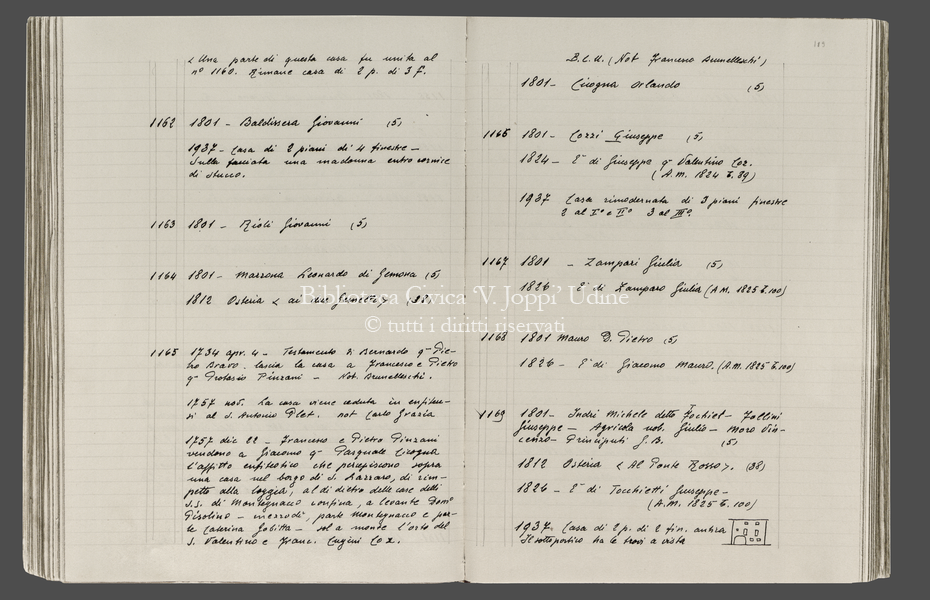 « Una parte di questa casa fu unita al
n° 1160. Rimane casa di 2 p. di 3 f.
1162 1801 - Baldissera Giovanni (5)
1937 - Casa di 2 piani di 4 finestre -
Sulla facciata una madonna entro cornice
di stucco.
1163 1801 - Rioli Giovanni (5)
1164 1801 - Marzona Leonardo di Gemona (5)
1812 Osteria «
1165 1734 apr. 4 - Testamento di Bernardo q^m Pie-
tro Bravo. lascia la casa a Francesco e Pietro
q^m Protasio Pinzani - Not. Brunelleschi.
1757 nov. La casa viene ceduta in enfiteu-
si al S. Antonio Plet. not Carlo Grazia
1757 dic 22 - Francesco e Pietro Pinzani
vendono a Giacomo q^m Pasquale Cicogna
l'affitto enfiteotico che percepiscono sopra
una casa nel borgo di S. Lazzaro, di rim-
petto alla loggia, al di dietro delle case delli
S.S. di Montegnaco confina, a levante Dom°
Pisolino - mezzodì, parte Montegnaco e par-
te Caterina Gobitta - sol a monte l'orto del
S. Valentino e Franc. Cugini Coz.
189
B.C.U. (Not Francesco Brunelleschi)
1801 - Cicogna Orlando (5)
1166 1801 - Cozzi Giuseppe (5)
1824 - E' di Giuseppe q^m Valentino Coz.
(A.M. 1824 F. 89)
1937 Casa rimodernata di 3 piani finestre
2 al I° e II° 3 al III°
1167 1801 - Zampari Giulia (5)
1826 E' di Zamparo Giulia (A.M. 1825 F. 100)
1168 1801 Mauro D. Pietro (5)
1826 - E' di Giacomo Mauro. (A.M. 1825 F. 100)
1169 1801 - Indri Michele detto Fochiet - Follini
Giuseppe - Agricola nob. Giulio - Moro Vin-
cenzo - Principuti G.B. (5)
1812 Osteria « Al Ponte Rosso ». (38)
1826 - E' di Tocchietti Giuseppe -
(A.M. 1825 F. 100)
1937. Casa di 2 p. di 2 fin. antica
Il sottoportico ha le travi a vista
Biblioteca Civica 'V. Joppi' Udine
© tutti i diritti riservati